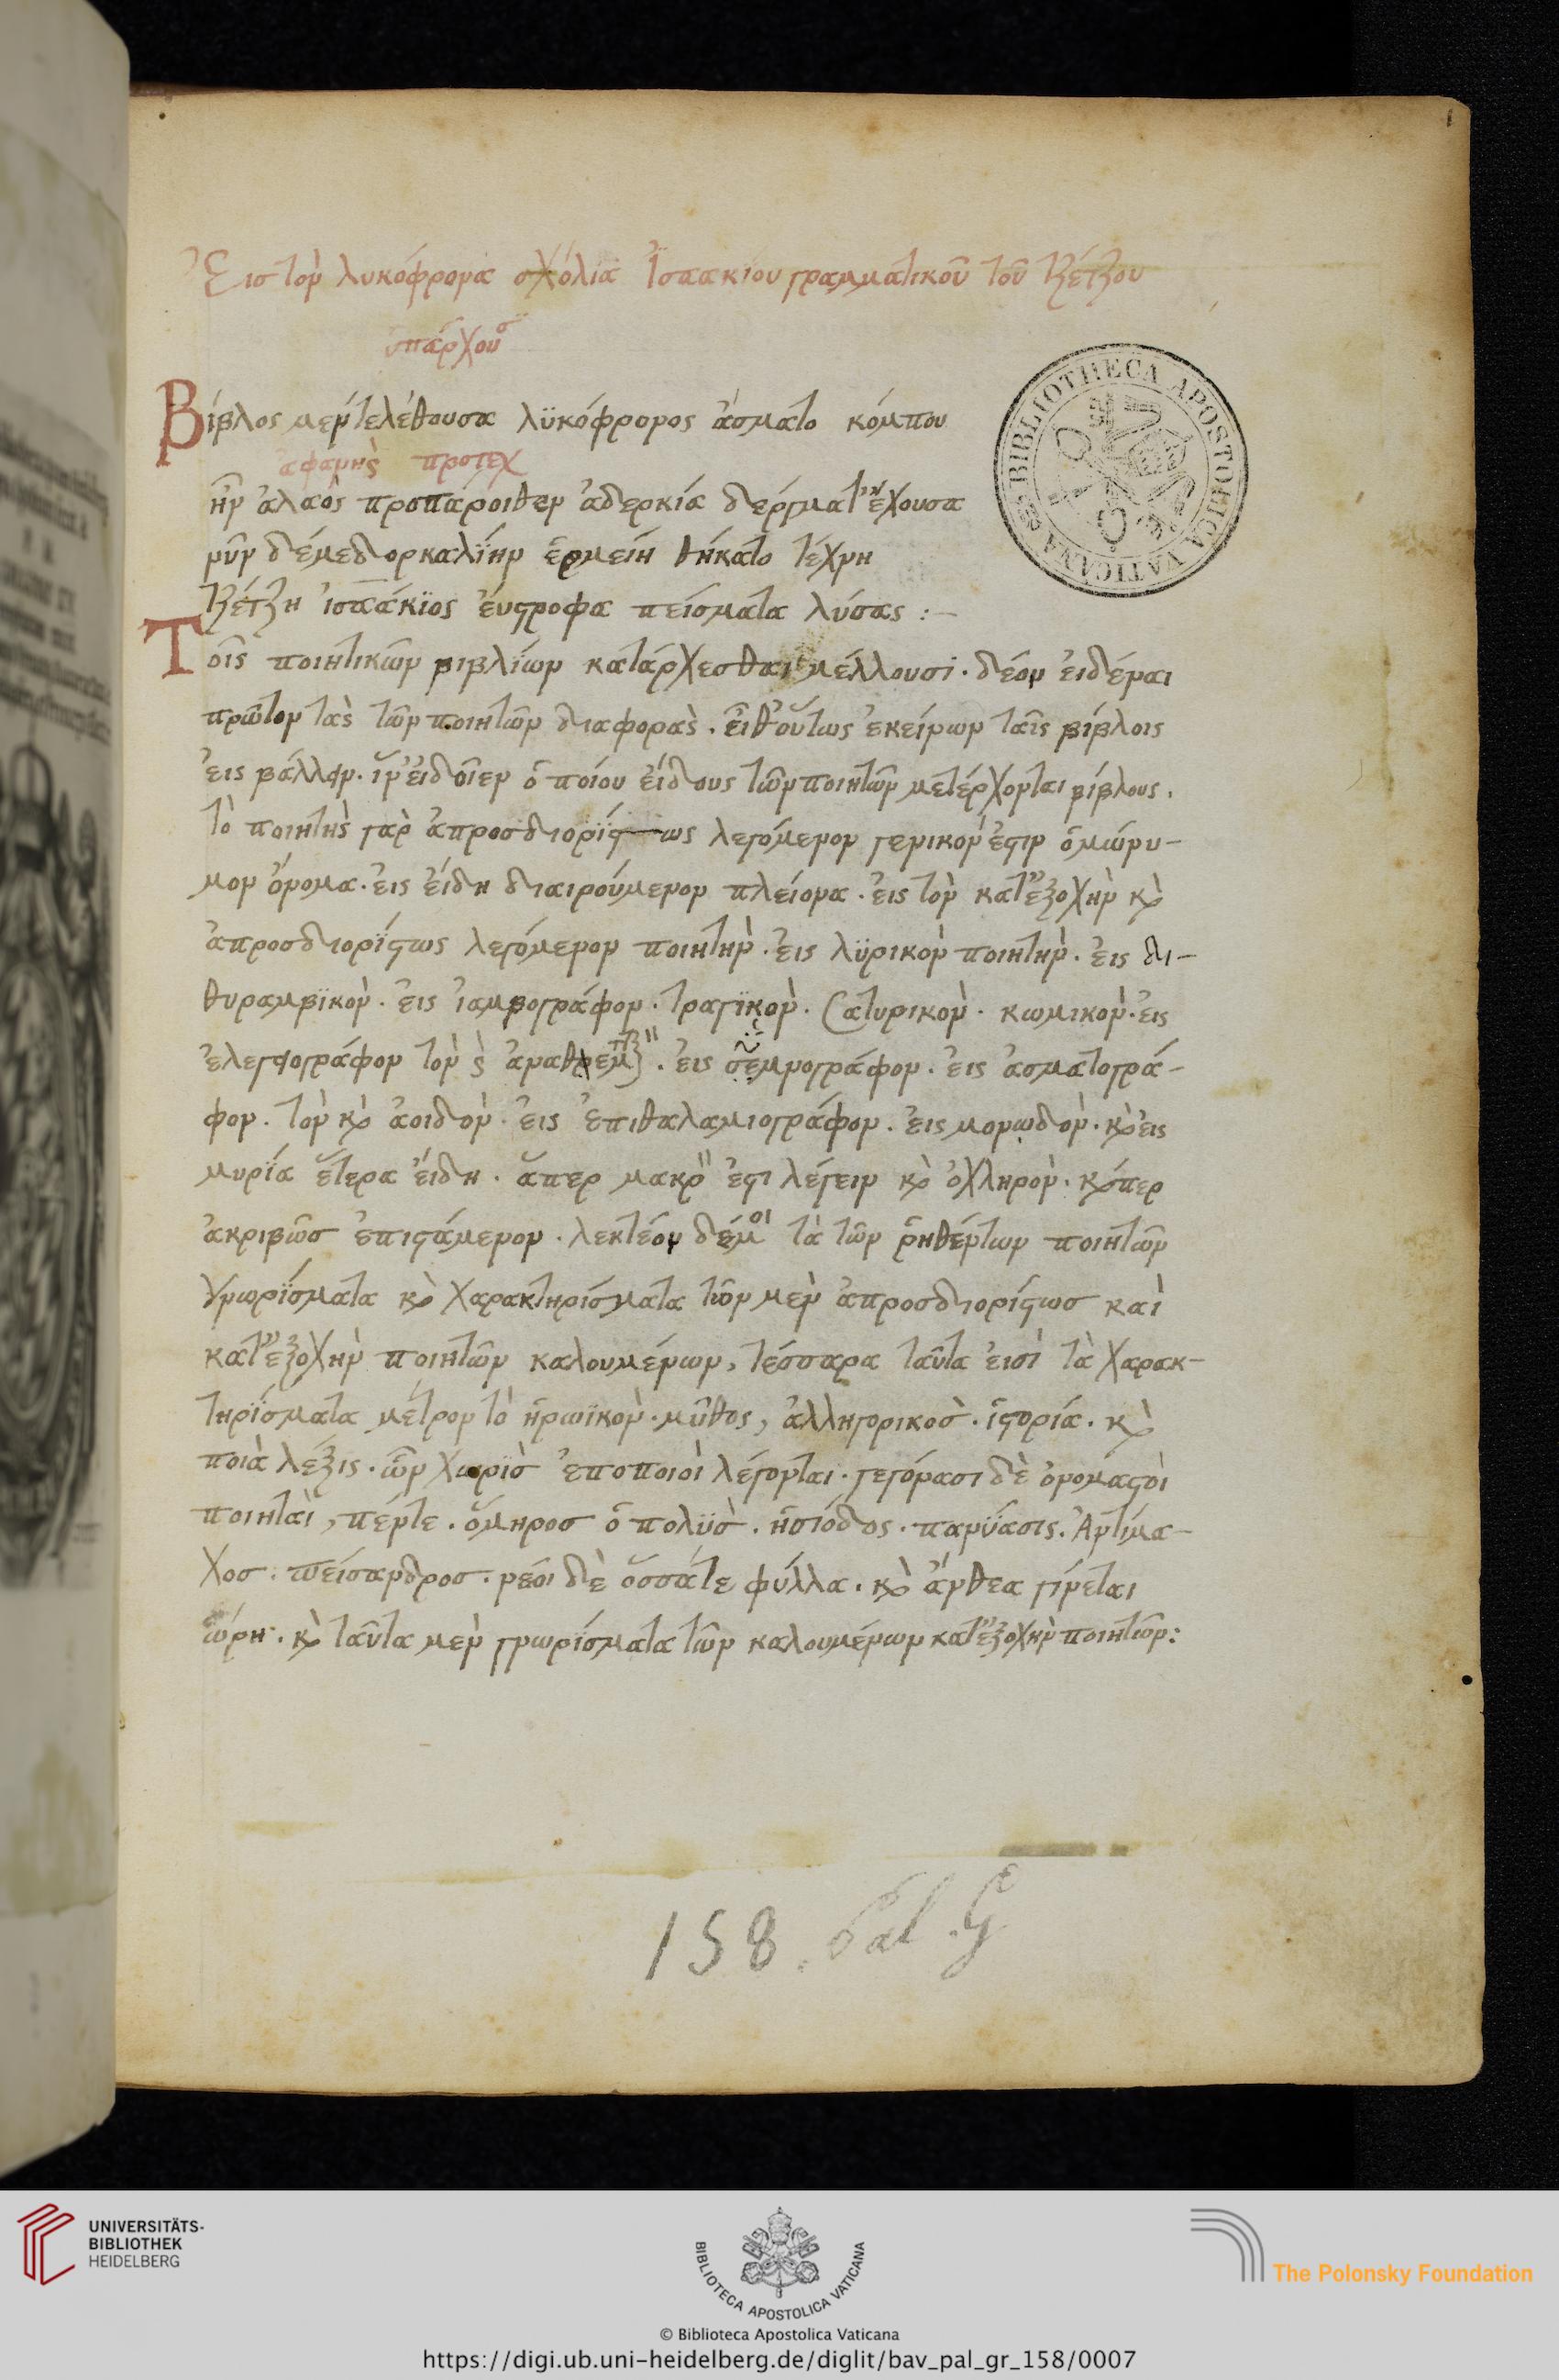 Εἰς τὸν λυκόφρονα σχόλια Ἰσαακίου γραμματικοῦ τοῦ τζέτζου
ὑπάρχουσ
Βίβλος μὲν τελέθουσα λϋκόφρονος ἄσματο κόμπου
ἀφανὴς προτεχ
ἦν ἀλαὸς προπάροιθεν ἀδερκία δέργματ' ἔχουσα
νῦν δέ με δορκαλίην ἑρμείη θήκατο τέχνη
τζέτζη ἰσαάκϊος εὔστροφα πείσματα λύσας :–
Τοῖς ποιητικῶν βιβλίων κατάρχεσθαι μέλλουσι · δέον εἰδέναι
πρῶτον τὰς τῶν ποιητῶν διαφορὰς · εἶθ' οὕτως ἐκείνων ταῖς βίβλοις
εἰς βάλλειν · ἵν' εἰδοῖεν ὁποίου εἴδους τῶν ποιητῶν μετέρχονται βίβλους ·
τὸ ποιητὴς γὰρ ἀπροσδιορίστως λεγόμενον γενικόν ἐστιν ὁμώνυ-
μον ὄνομα · εἰς εἴδη διαιρούμενον πλείονα · εἰς τὸν κατ' ἐξοχὴν κὶ
ἀπροσδιορίστως λεγόμενον ποιητὴν · εἰς λϋρικὸν ποιητὴν · εἰς δι-
θυραμβϊκὸν · εἰς ἰαμβογράφον · τραγϊκὸν · Σατυρικὸν · κωμικὸν · εἰς
ἐλεγειογράφον τὸν · εἰς ὑμνογράφον · εἰς ἀσματογρά-
φον · τὸν κὶ ἀοιδὸν · εἰς ἐπιθαλαμιογράφον · εἰς μονῳδὸν · κὶ εἰς
μυρία ἕτερα εἴδη · ἅπερ μακρὸν ἐστι λέγειν κὶ ὀχληρὸν · κἄπερ
ἀκριβῶσ ἐπιστάμενον · λεκτέον δέ μοι τὰ τῶν ῥηθέντων ποιητῶν
γνωρίσματα κὶ χαρακτηρίσματα τῶν μὲν ἀπροσδιορίστωσ καὶ
κατ' ἐξοχὴν ποιητῶν καλουμένων, τέσσαρα ταῦτα εἰσὶ τὰ χαρακ-
τηρίσματα μέτρον τὸ ἡρωϊκὸν · μῦθος, ἀλληγορικοσ · ἱστορία · κὶ
ποιὰ λέξις · ὧν χωρὶσ ἐποποιοὶ λέγονται · γεγόνασι δὲ ὀνομαστοὶ
ποιηταὶ, πέντε · ὅμηροσ ὁ πολὺσ · ἡσιόδος · πανύασις · Ἀντίμα-
χοσ · πείσανδροσ · νέοι δὲ ὅσσάτε φύλλα · κὶ ἄνθεα γίνεται
ὥρη · κὶ ταῦτα μὲν γνωρίσματα τῶν καλουμένων κατ' ἐξοχὴν ποιητῶν :
158. Pal. G
BIBLIOTHECA APOSTOLICA VATICANA
UNIVERSITÄTS-
BIBLIOTHEK
HEIDELBERG
BIBLIOTECA APOSTOLICA VATICANA
The Polonsky Foundation
© Biblioteca Apostolica Vaticana
https://digi.ub.uni-heidelberg.de/diglit/bav_pal_gr_158/0007